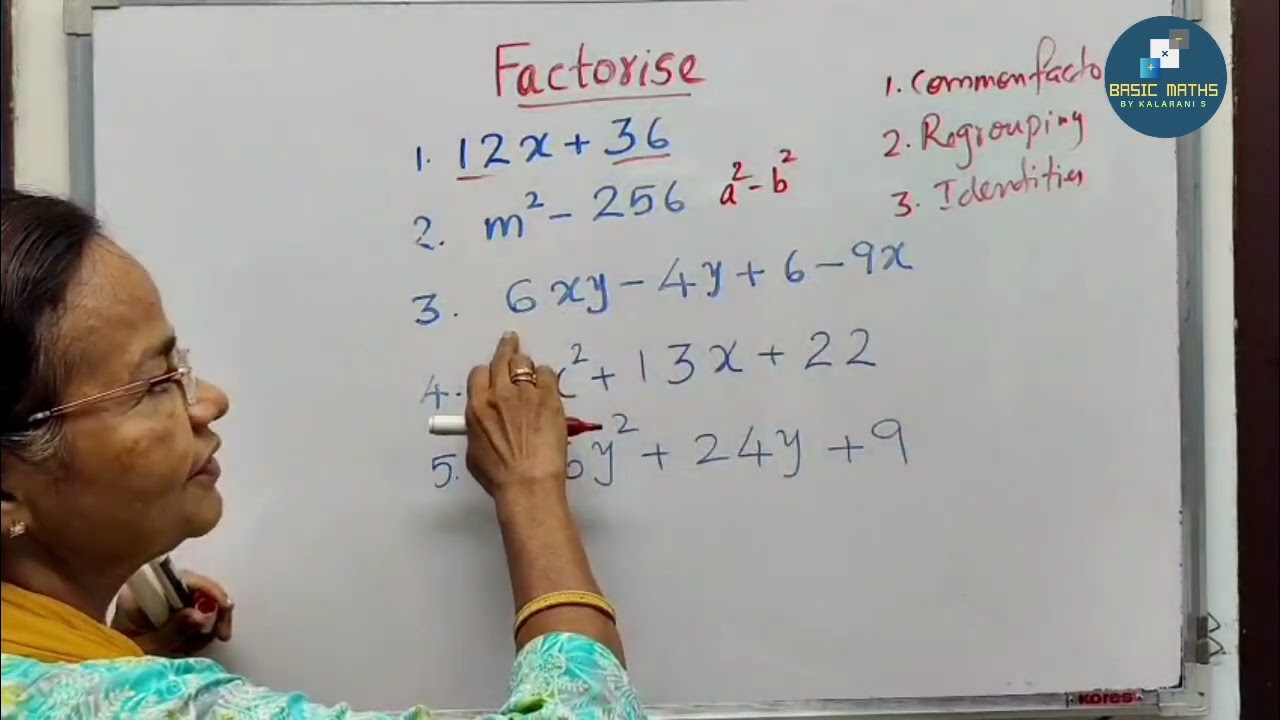 Factorise
1. 12x + 36
2. m² - 256 a² - b²
3. 6xy - 4y + 6 - 9x
4. x² + 13x + 22
5. y² + 24y + 9
1. Common facto
2. Regrouping
3. Identities
BASIC MATHS
BY KALARANI S
kores